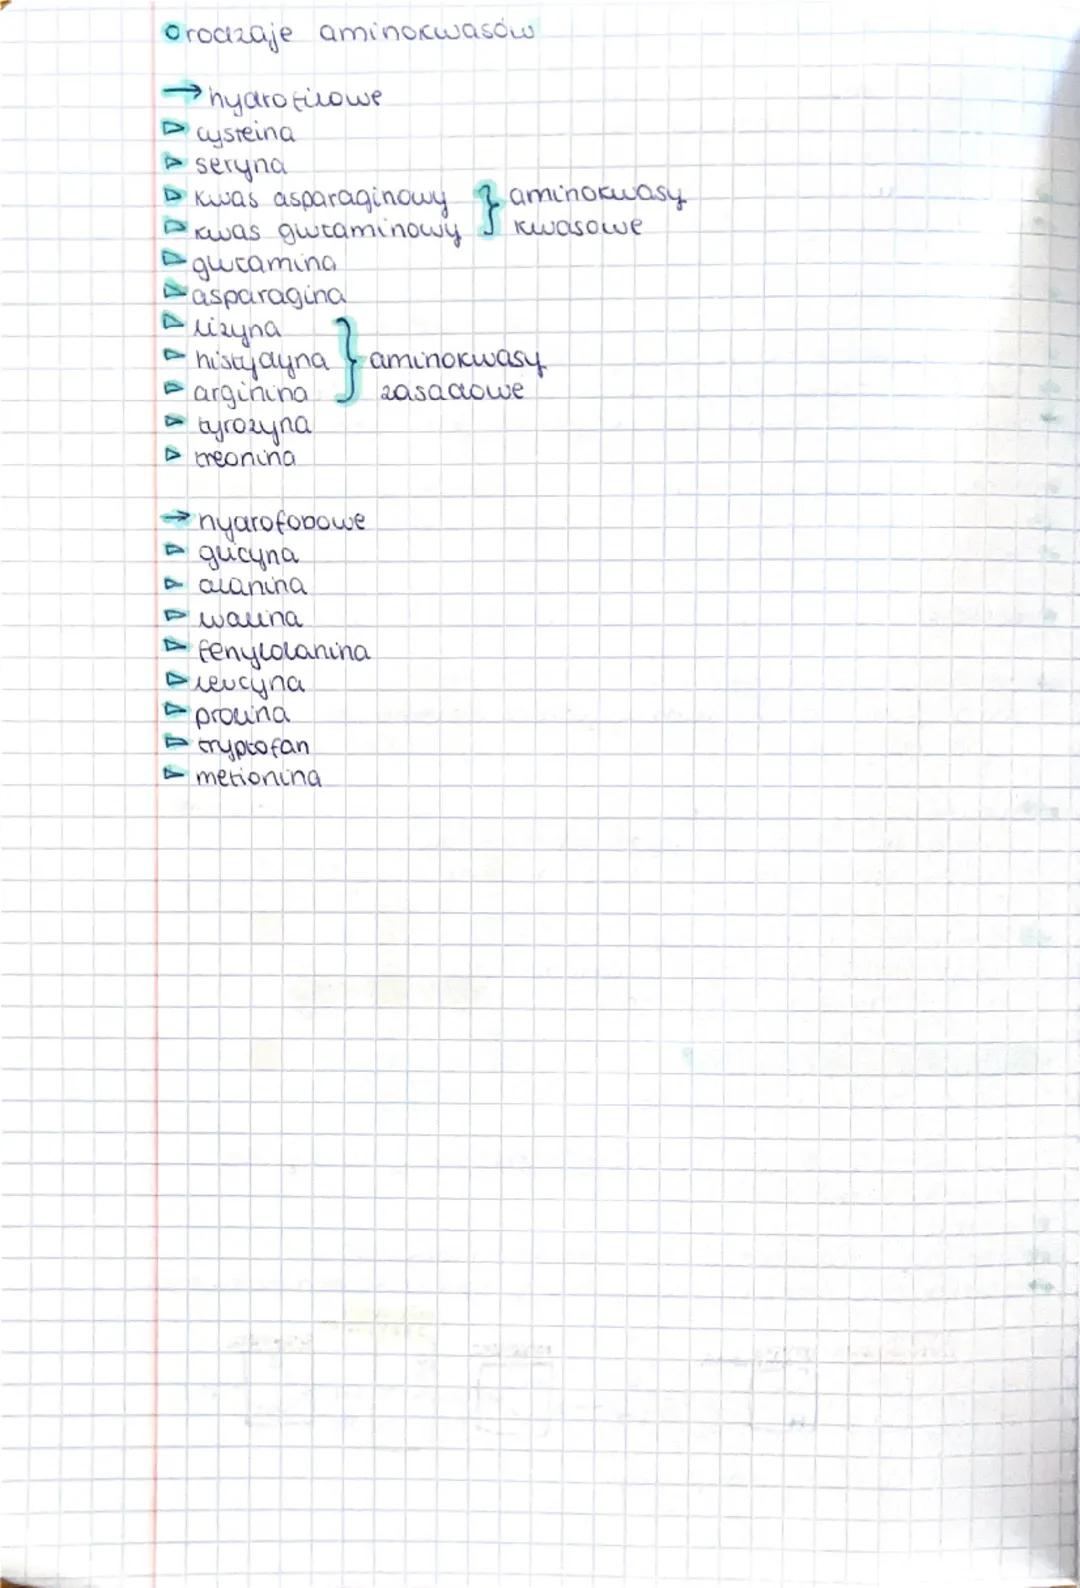 rodzaje aminokwasów
→ hydrofilowe
▷ cysteina
▷ seryna
▷ kwas asparaginowy } aminokwasy
▷ kwas glutaminowy } kwasowe
▷ glutamina
▷ asparagina
▷ lizyna
▷ histydyna } aminokwasy
▷ arginina } zasadowe
▷ tyrozyna
▷ treonina
→ hydrofobowe
▷ glicyna
▷ alanina
▷ walina
▷ fenyloalanina
▷ leucyna
▷ prolina
▷ tryptofan
▷ metionina